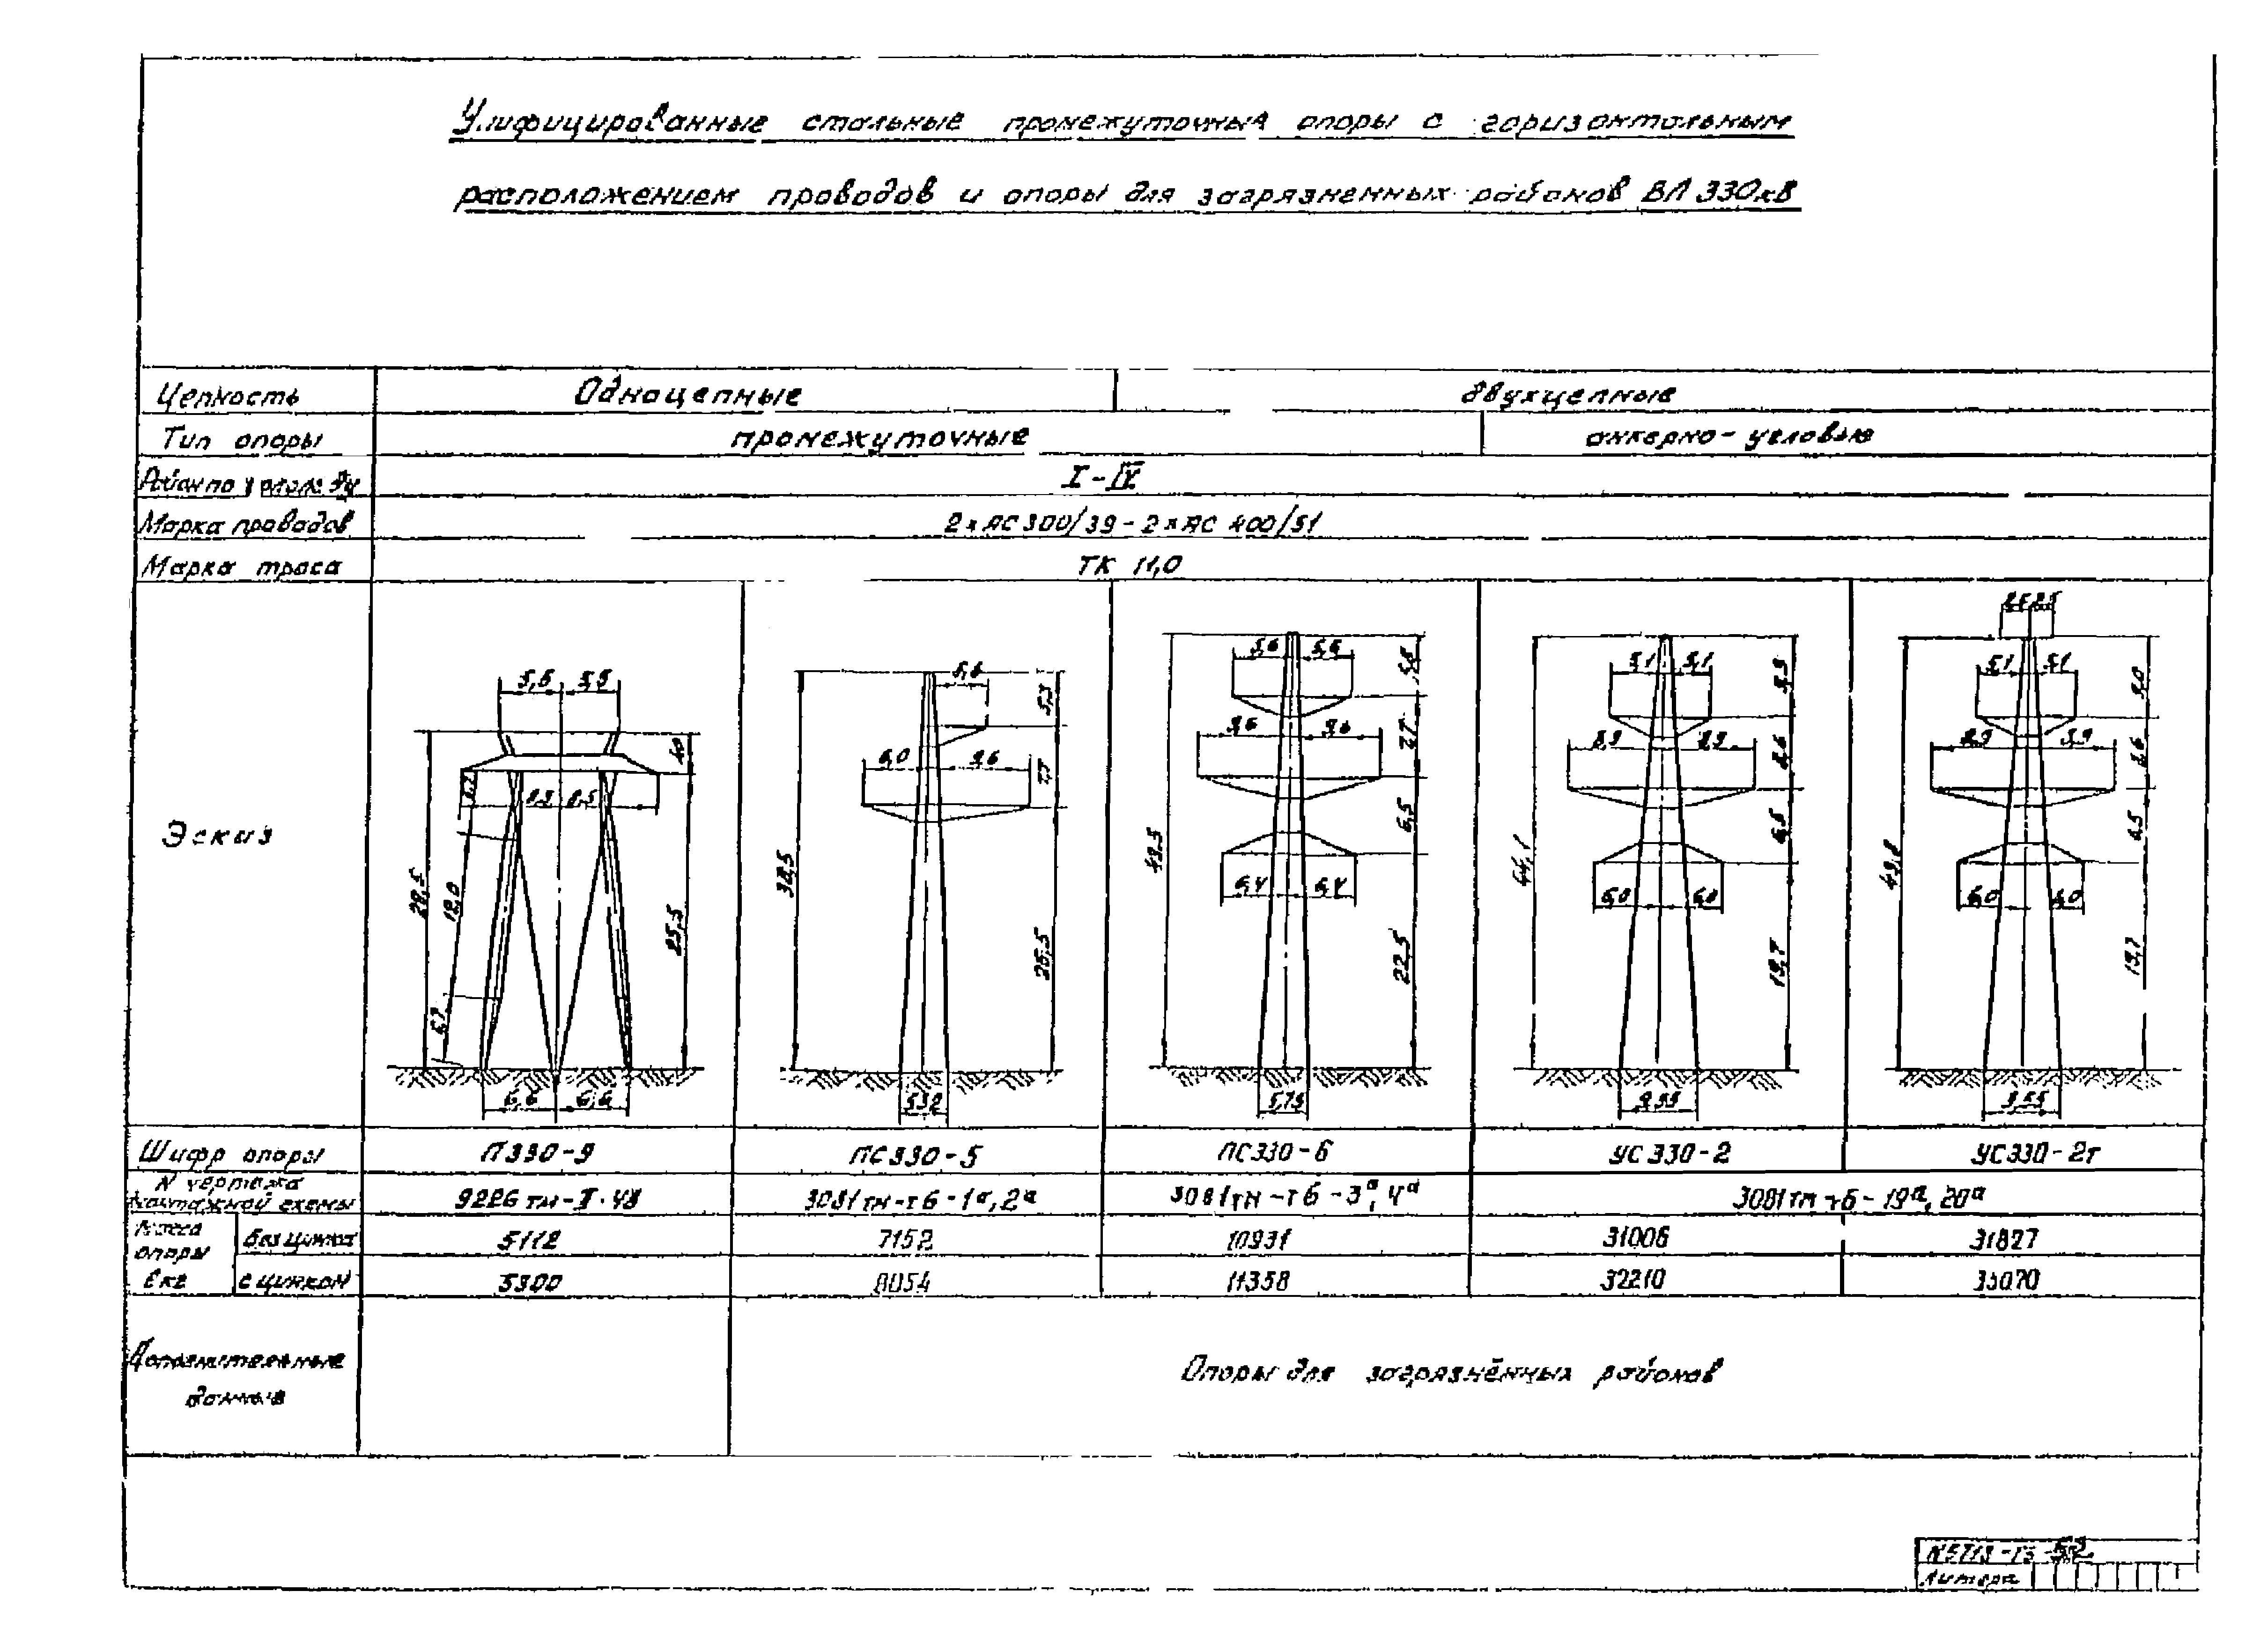 Унифицированные стальные промежуточные опоры с горизонтальным
расположением проводов и опоры для загрязненных районов ВЛ 330кВ
Цепность Одноцепные двухцепные
Тип опоры промежуточные анкерно-угловые
I-IV
Марка проводов 2×АС300/39-2×АС 400/51
Марка троса ТК 11,0
Эскиз
5,6 5,6 5,5 5,5 5,1 5,1 5,1 5,1
28,5 12,0 25,5
6,0 9,6 7,7 38,5
9,6 9,6 6,5 22,5
8,9 8,9 8,6 6,5 44,1 19,7
8,9 8,9 8,6 6,5 19,7
6,4 6,4 6,0 6,0 6,0 6,0
6,6 6,6 5,32 5,75 9,55 9,55
Шифр опоры П330-9 ПС330-5 ПС330-6 УС330-2 УС330-2т
N чертежа
монтажной схемы 9226тм-II-48 3081тм-т6-1а,2а 3081тм-т6-3а,4а 3081тм-т6-19а,20а
Масса
опоры без цинка 5112 7152 10931 31006 31827
в кг с цинком 5300 8054 11358 32210 33070
Дополнительные
данные
Опоры для загрязнённых районов
Литера